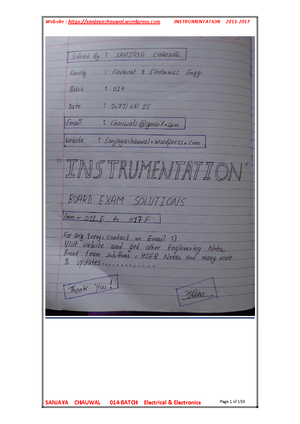 Website : https://sanjayachauwal.wordpress.com INSTRUMENTATION 2011-2017
Solved By : SANJAYA CHAUWAL
Faculty : Electrical & Electronics Engg.
Batch : 014
Date : 2075/08/15
Email : Chauwals@gmail.com
Website : Sanjayachauwal.wordpress.com
"INSTRUMENTATION"
BOARD EXAM SOLUTIONS
From - 011 F to 017 F
For any Query, Contact on Email :)
Visit website and get other Engineering Notes,
Board Exam solution, HSEB Notes and many more
& updates.............
Thank You!
SANJAYA CHAUWAL 014-BATCH Electrical & Electronics Page 1 of 153